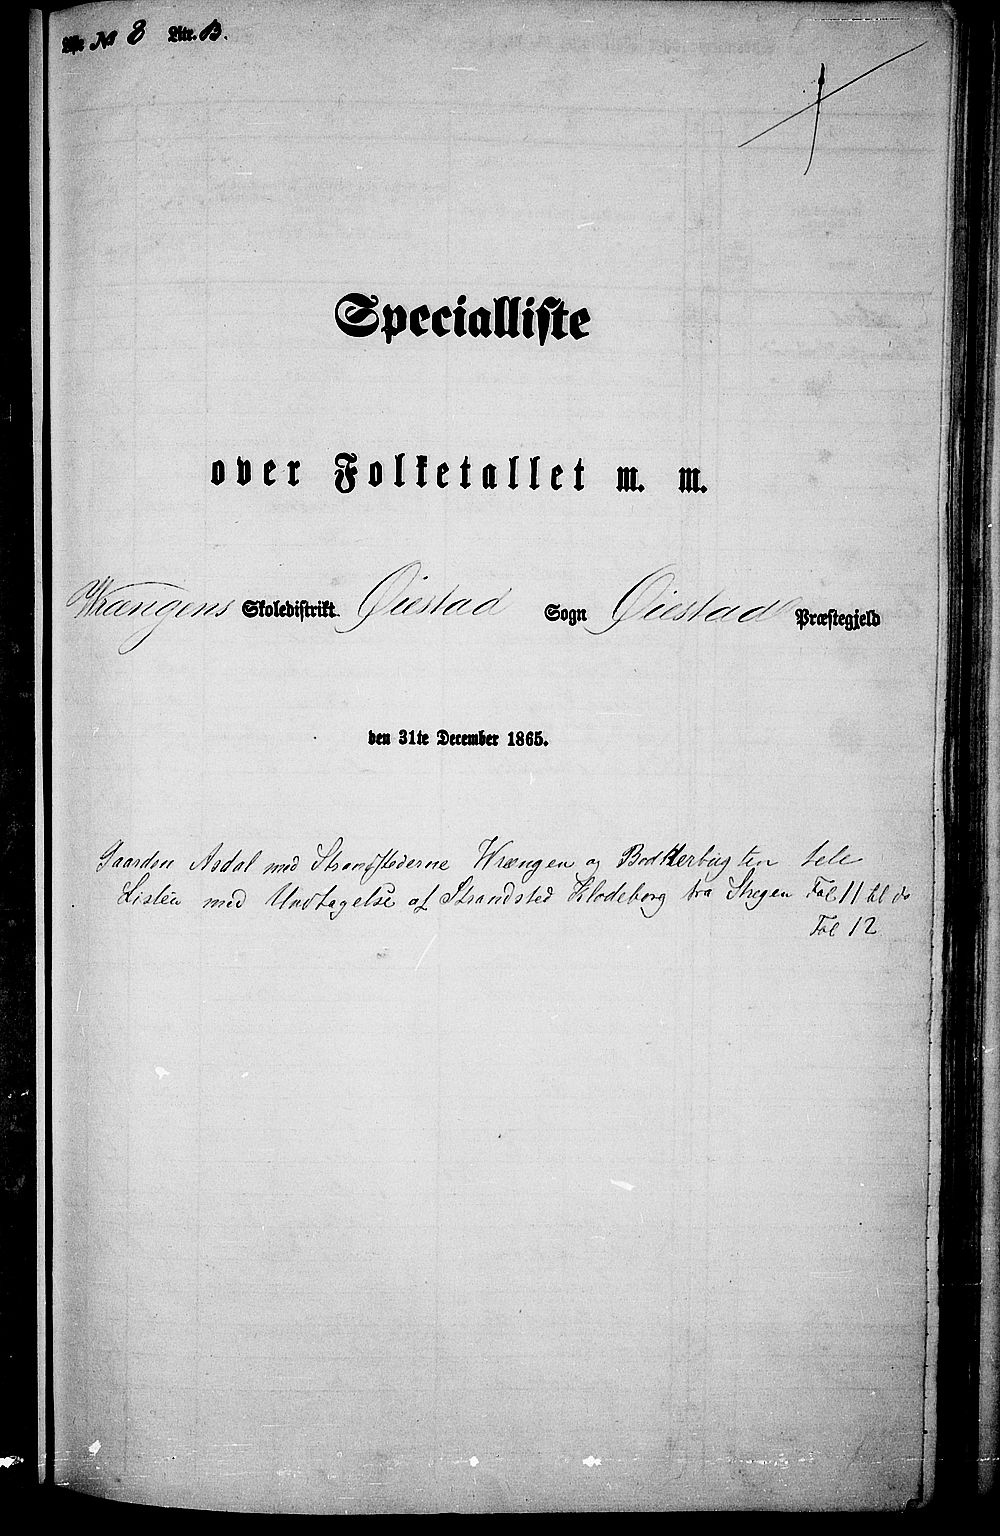 № 8 Litr. B.
Specialliste
over Folketallet m. m.
Wrængens Skoledistrikt Øiestad Sogn Øiestad Præstegjeld
den 31te December 1865.
Gaarden Asdal med Strandstæderne Wrængen og Bodkerbugten hele
Listen med Undtagelse af Strandsted Klodeborg fra Stregen Fol 11 til do
Fol 12